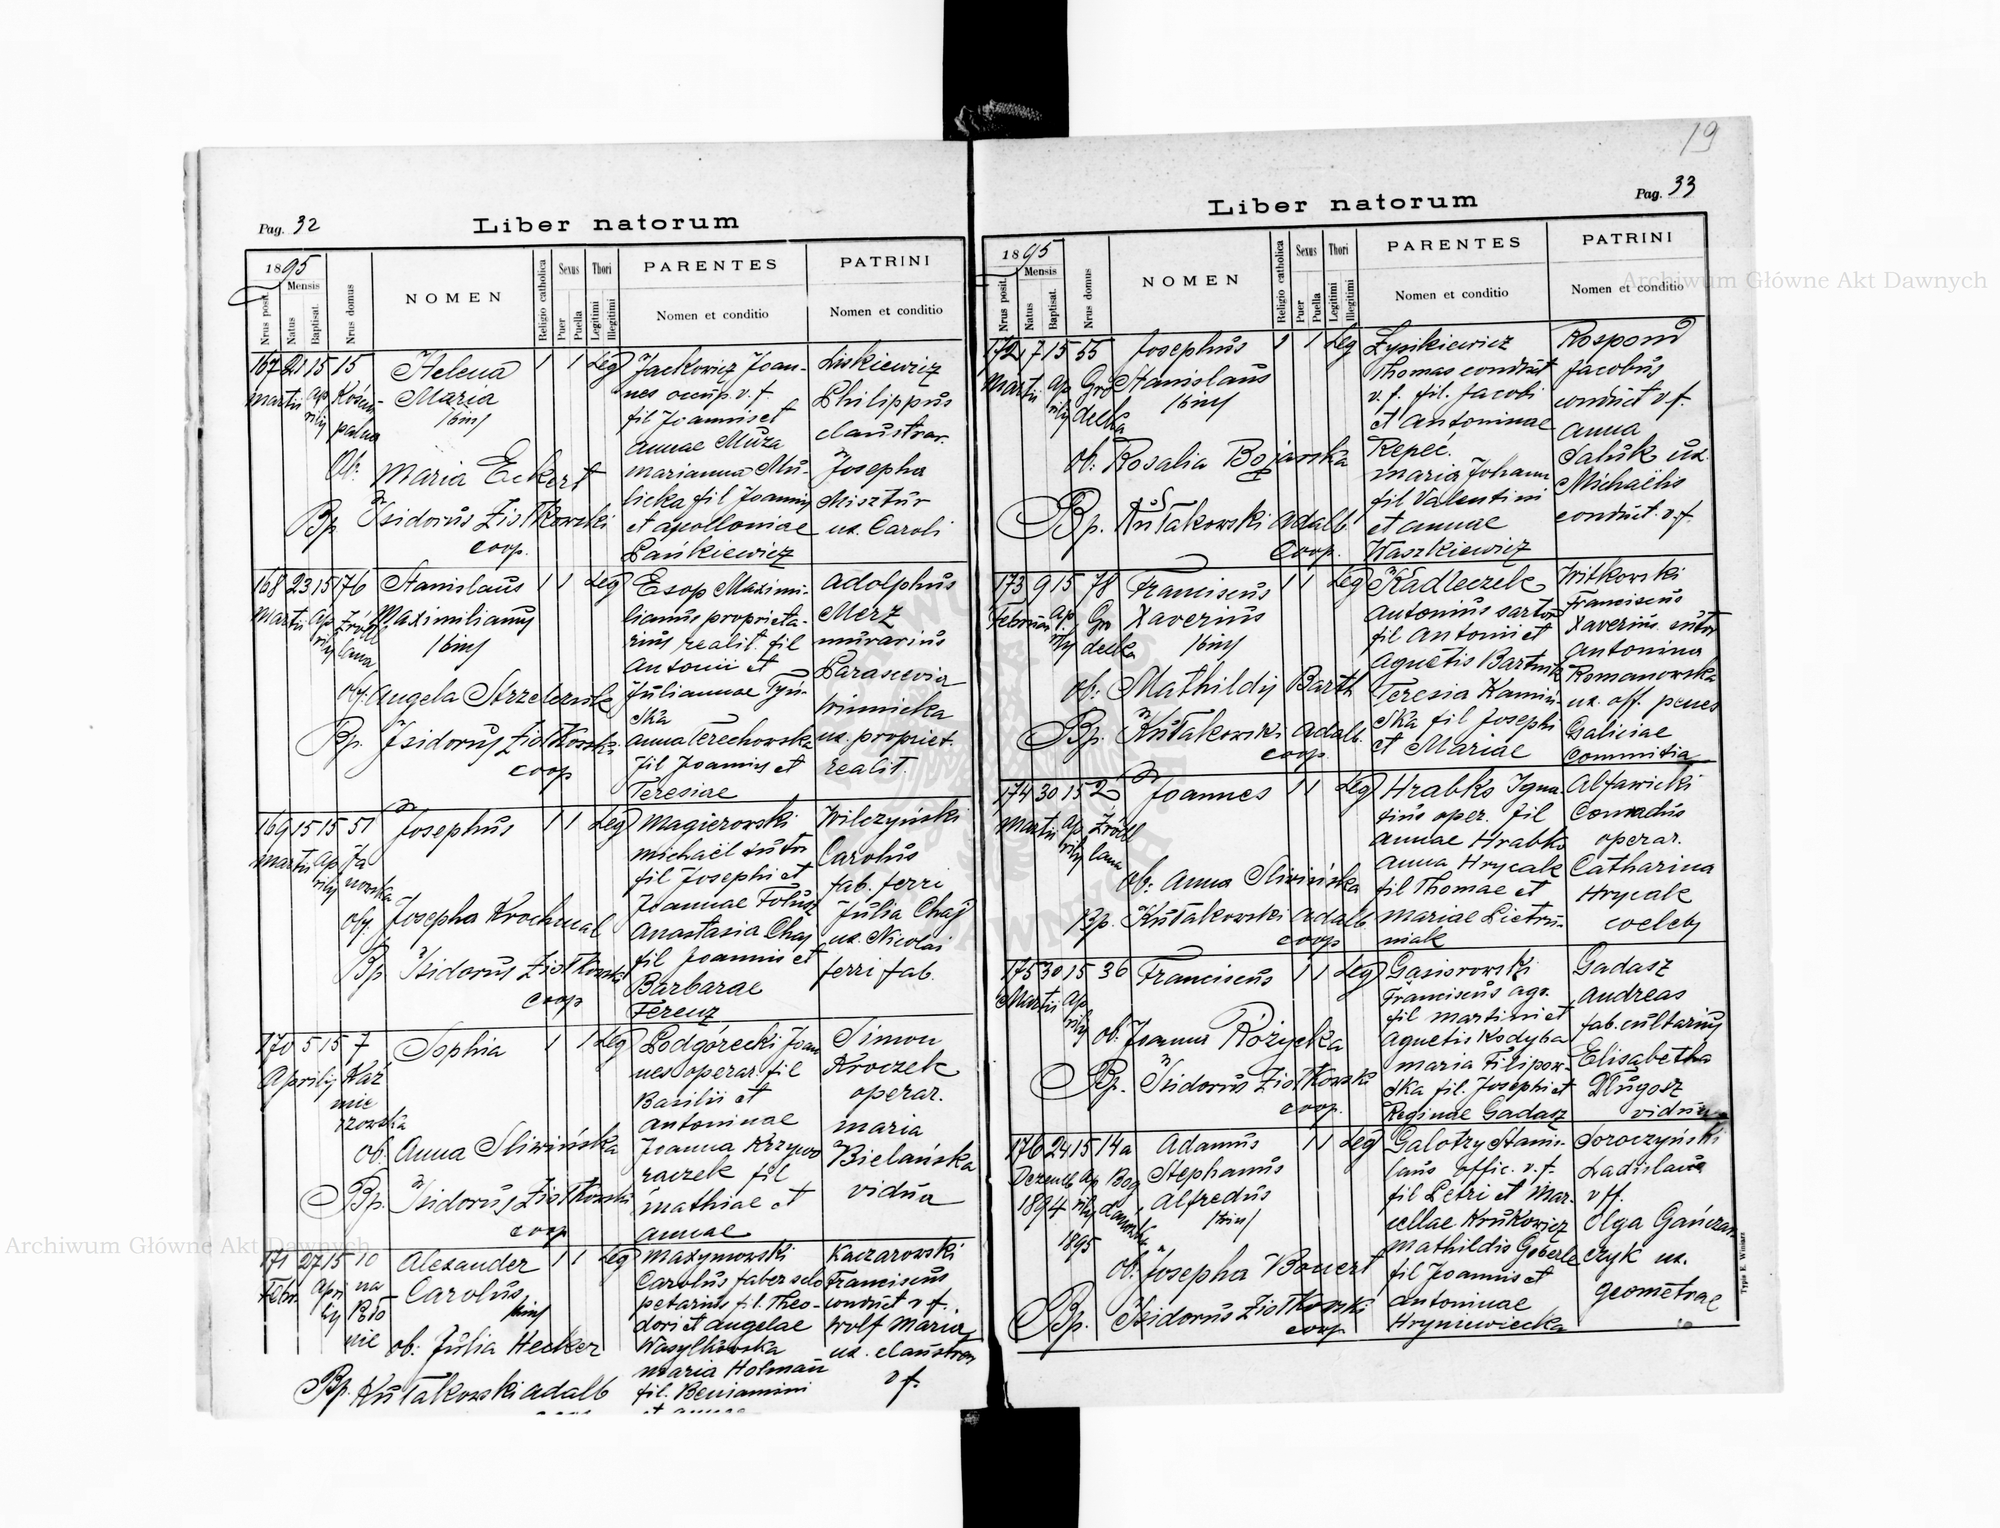 19
Pag. 32
Liber natorum
1895
Mensis
Nrus posit.
Natus
Baptisat.
Nrus domus
NOMEN
Religio catholica
Sexus
Puer
Puella
Thori
Legitimi
Illegitimi
PARENTES
Nomen et conditio
PATRINI
Nomen et conditio
167 21 15 15 Helena 1 1 Leg
Martii Aprilis
Maria
/bin/
Ob: Maria Eckert
Bp. Isidorus Ziołkowski
coop.
Jackowicz Joan-
nes occup. v. f.
fil Joannis et
Annae Muza
Marianna Mu-
licka fil Joannis
et Apolloniae
Pańkiewicz
Liskiewicz
Philippus
claustrar.
Josepha
Misztur
ux. Caroli
168 23 15 76 Stanislaus 1 1 Leg
Martii Aprilis Źródlana Maximilianus
/bin/
ob. Angela Strzelczuk
Bp. Isidorus Ziołkowski
coop
Esop Maximi-
lianus proprieta-
rius realit. fil
Antonii et
Juliannae Tyń-
ska
Anna Terechowska
fil Joannis et
Teresiae
Adolphus
Merz
murarius
Parascevia
Winnicka
ux. propriet.
realit.
169 15 15 51 Josephus 1 1 Leg
Martii Aprilis Janowska
ob. Josepha Krochmal
Bp Isidorus Ziołkowski
coop
Magierowski
Michaël sutor
fil Josephi et
Joannae Tołusz
Anastasia Chaj
fil Joannis et
Barbarae
Ferenz
Wilczyński
Carolus
fab. ferri
Julia Chaj
ux. Nicolai
ferri fab.
170 5 15 7 Sophia 1 1 Leg
Aprilis Kazmierzowska
ob. Anna Sliwińska
Bp. Isidorus Ziołkowski
coop
Podgórecki Joan
nes operar. fil
Basilii et
Antoninae
Joanna Krzywo
raczek fil
Mathiae et
Annae
Simon
Kroczek
operar.
Maria
Bielańska
vidua
171 27 15 10 Alexander 1 1 Leg
Febr. Aprilis na Błonie Carolus
/bin/
ob: Julia Hecker
Bp. Kułakowski Adalb
Maxymowski
Carolus faber sclo
petarius fil. Theo-
dori et Angelae
Wasylkowska
Maria Holman
fil. Beniamini
et Annae
Kaczarowski
Franciscus
conduct v f.
Wolf Maria
ux. claustrar
v f.
Pag. 33
Liber natorum
1895
Mensis
Nrus posit.
Natus
Baptisat.
Nrus domus
NOMEN
Religio catholica
Sexus
Puer
Puella
Thori
Legitimi
Illegitimi
PARENTES
Nomen et conditio
PATRINI
Nomen et conditio
172 17 15 55 Josephus 1 1 Leg
Martii Aprilis Grodecka Stanislaus
/bin/
ob: Rosalia Bojarska
Bp. Kułakowski Adalb.
Coop.
Łysikiewicz
Thomas conduct
v. f. fil. Jacobi
et Antoninae
Repeć.
Maria Johann
fil Valentini
et Annae
Waszkiewicz
Rospond
Jacobus
conduct v. f.
Anna
Saluk ux.
Michaëlis
conduct. v. f.
173 9 15 78 Franciscus 1 1 Leg
Februarii Aprilis Grodecka Xaverius
/bin/
ob: Mathildis Barth
Bp. Kułakowski Adalb.
coop.
Kadleczek
Antonius sartor
fil Antonii et
Agnetis Bartnik
Teresia Kamiń-
ska fil Josephi
et Mariae
Witkowski
Franciscus
Xaverius sutor
Antonina
Romanowska
ux. off. penes
Galiciae
Commitia
174 30 15 2 Joannes 1 1 Leg
Martii Aprilis Źródlana
ob: Anna Sliwińska
Bp. Kułakowski Adalb.
coop
Hrabko Igna-
tius oper. fil
Annae Hrabko
Anna Hrycak
fil Thomae et
Mariae Pietru-
niak
Alfawicki
Conradus
operar.
Catharina
Hrycak
coelebs
175 30 15 36 Franciscus 1 1 Leg
Martii Aprilis
ob: Joanna Różycka
Bp. Isidorus Ziołkowski
coop.
Gasiorowski
Franciscus agr.
fil Martini et
Agnetis Kodyba
Maria Filipow-
ska fil. Josephi et
Reginae Gadasz
Gadasz
Andreas
fab. cultarius
Elisabetha
Długosz
vidua
176 24 15 14a Adamus 1 1 Leg
Dezemb Aprilis Stephanus
1894 Alfredus
1895 /trin/
ob. Josepha Bouert
Bp. Isidorus Ziołkowski
coop.
Galotzy Stanis-
laus offic. v. f.
fil Petri et Mar-
cellae Krukowicz
Mathildis Göberle
fil Joannis et
Antoninae
Hryniewiecka
Soroczyński
Ladislaus
v ff.
Olga Gańczar-
czyk ux.
geometrae
Typis E. Winiarz
Archiwum Główne Akt Dawnych
Archiwum Główne Akt Dawnych
Archiwum Główne Akt Dawnych